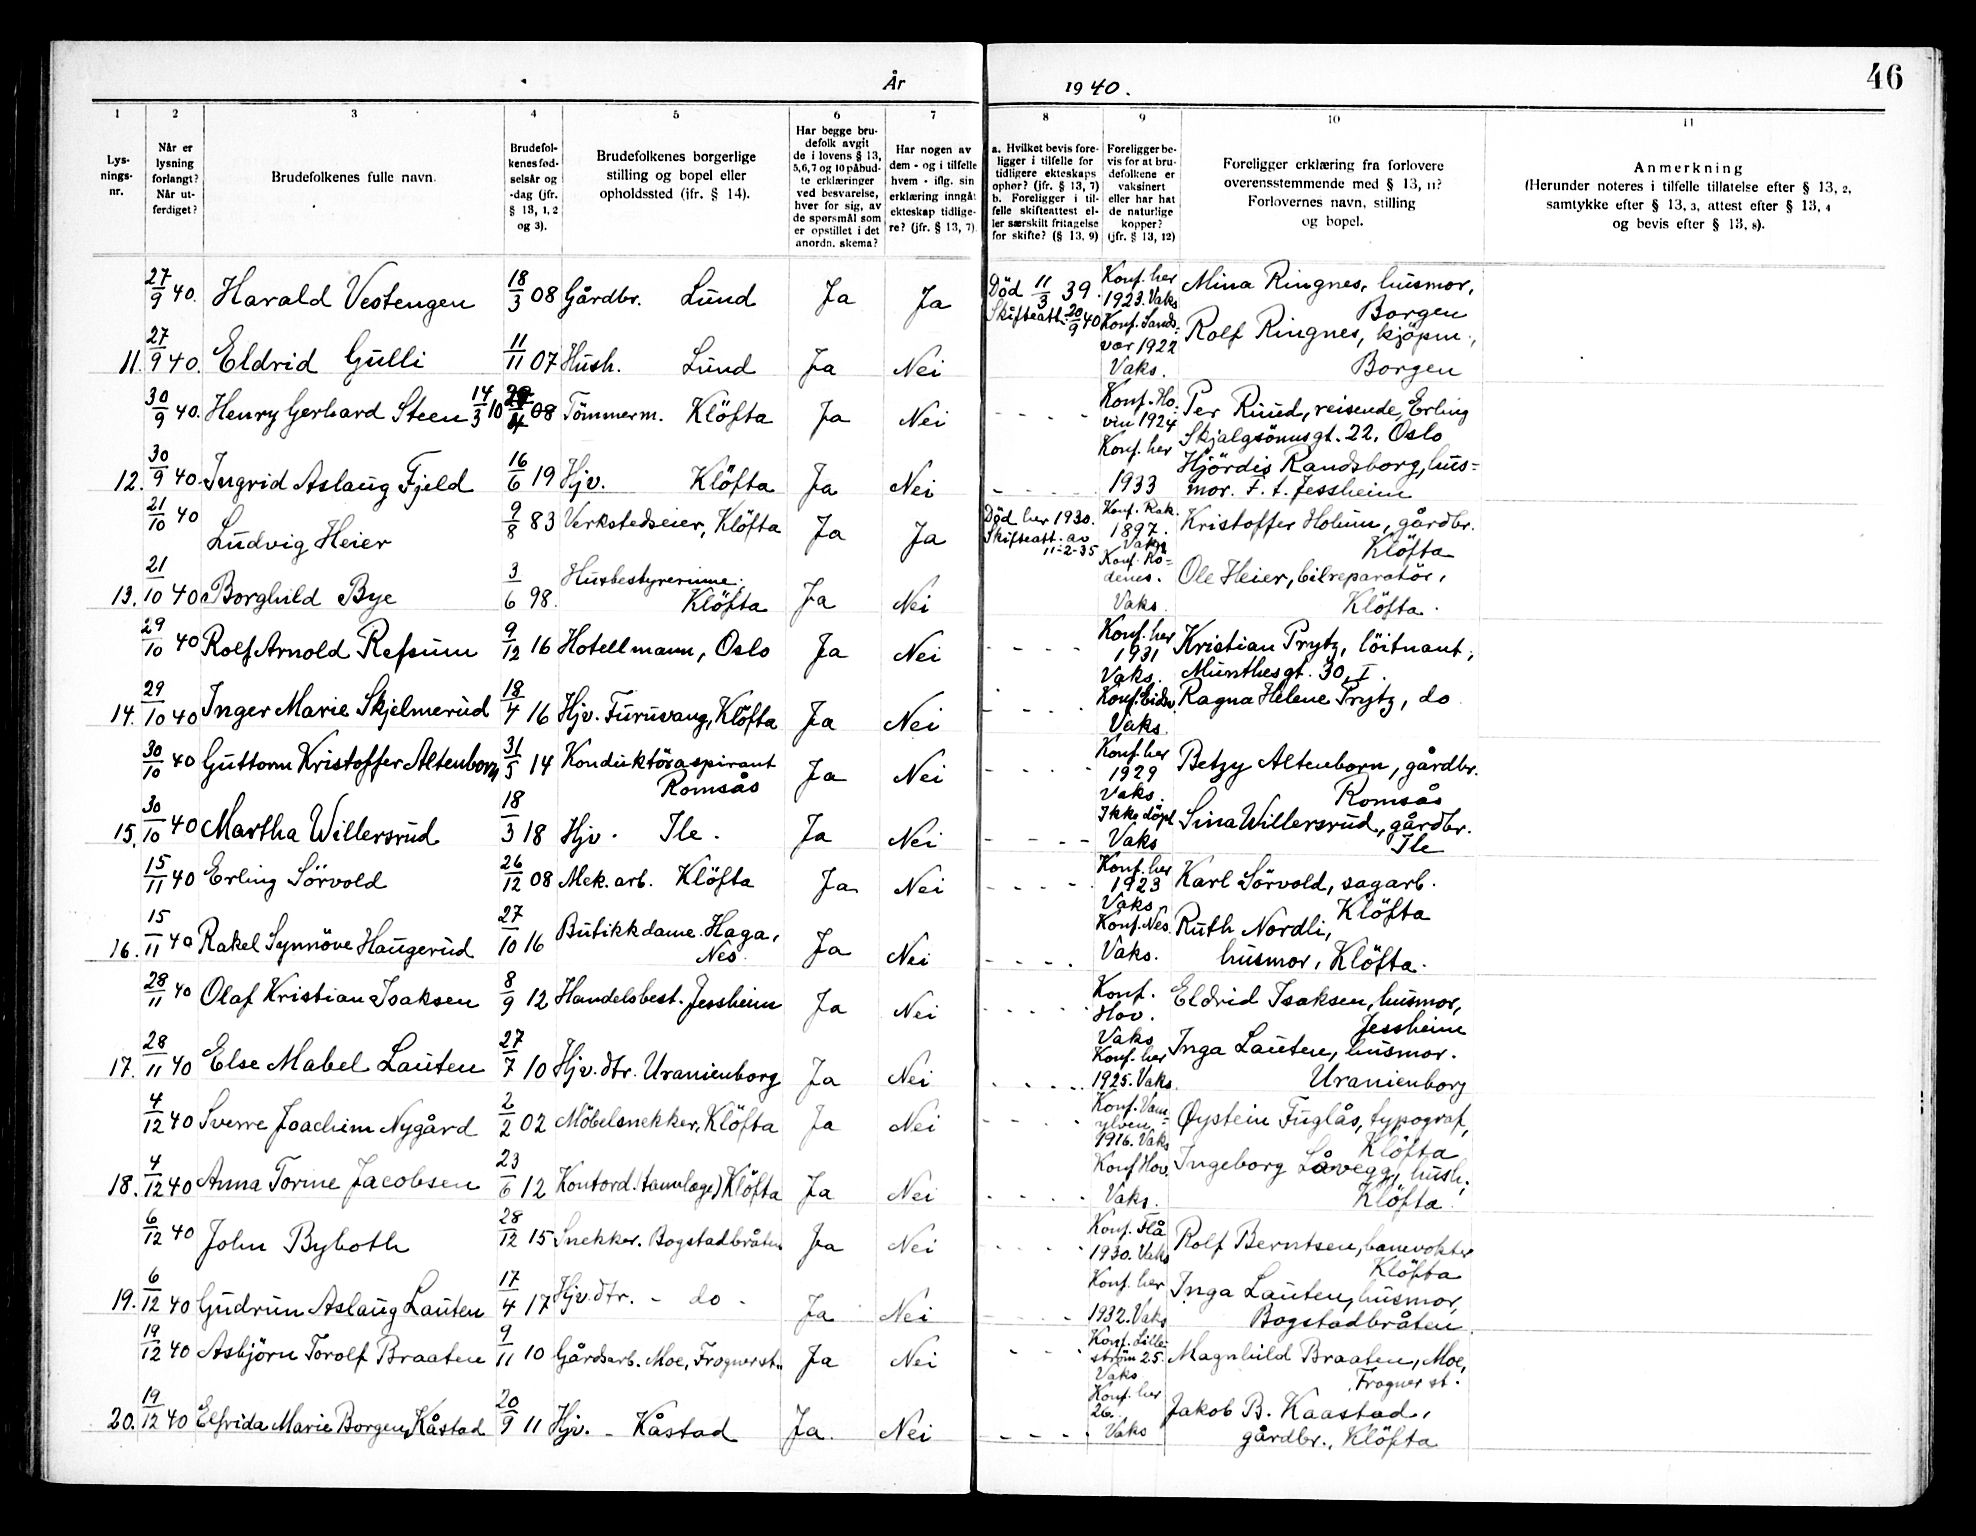 År 1940.
46
1 2 3 4 5 6 7 8 9 10 11
Lys-
nings-
nr.
Når er
lysning
forlangt?
Når ut-
ferdiget?
Brudefolkenes fulle navn.
Brudefol-
kenes fød-
selsår og
-dag (jfr.
§ 13, 1, 2
og 3).
Brudefolkenes borgerlige
stilling og bopel eller
opholdssted (jfr. § 14).
Har begge bru-
defolk avgit
de i lovens § 13,
5,6,7 og 10 påbud-
te erklæringer
ved besvarelse,
hver for sig, av
de spørsmål som
er opstillet i det
anordn. skema?
Har nogen av
dem - og i tilfelle
hvem - iflg. sin
erklæring inngåt
ekteskap tidlige-
re? (jfr. § 13, 7)
a. Hvilket bevis fore-
ligger i tilfelle for
tidligere ekteskaps
ophør? (jfr. § 13, 7)
b. Foreligger i til-
felle skifteattest el-
ler særskilt fritagelse
for skifte? (§ 13, 9)
Foreligger be-
vis for at bru-
defolkene er
vaksinert
eller har hat
de naturlige
kopper?
(jfr. § 13, 12)
Foreligger erklæring fra forlovere
overensstemmende med § 13, 11?
Forlovernes navn, stilling
og bopel.
Anmerkning
(Herunder noteres i tilfelle tillatelse efter § 13, 2,
samtykke efter § 13, 3, attest efter § 13, 4
og bevis efter § 13, 8).
27/9 40. Harald Vestengen 18/3 08 Gårdbr. Lund Ja Ja Död 11/3 39. Skifteatt. 20/9 40 Konf. her 1923. Vaks Mina Ringnes, husmor, Borgen
11. 27/9 40. Eldrid Gulli 11/11 07 Hush. Lund Ja Nei Konf. Sands- vær 1922 Vaks. Rolf Ringnes, kjöpm., Borgen
30/9 40. Henry Gerhard Steen 14/3 10 08 Tömmerm. Klöfta Ja Nei - - - - Konf. Ho- vin 1924 Per Ruud, reisende, Erling Skjalgsönnsgt. 22, Oslo
12. 30/9 40. Ingrid Aslaug Fjeld 16/6 19 Hjv. Klöfta Ja Nei - - - - Konf. her 1933 Hjördis Randsborg, hus- mor. F. t. Jessheim
21/10 40 Ludvig Heier 9/8 83 Verkstedseier, Klöfta Ja Ja Död her 1930. Skifteatt. av 11-2-35 Konf. Rak. 1897. Vaks Kristoffer Holum, gårdbr. Klöfta
13. 21/10 40 Borghild Bye 3/6 98. Husbestyrerinne. Klöfta Ja Nei Konf. Rö- denes. Vaks. Ole Heier, bilreparatör, Klöfta.
29/10 40 Rolf Arnold Refsum 9/12 16 Hotellmann, Oslo Ja Nei - - - - Konf. her 1931 Vaks. Kristian Prytz, löitnant, Munthesgt. 30, I.
14. 29/10 40 Inger Marie Skjelmerud 18/4 16 Hjv. Furuvang, Klöfta Ja Nei - - - - Konf. Eidsv. Vaks. Ragna Helene Prytz, do
30/10 40 Guttorm Kristoffer Altenborn 31/5 14 Konduktöraspirant Romsås Ja Nei - - - - Konf. her 1929 Vaks. Betzy Altenborn, gårdbr. Romsås
15. 30/10 40 Martha Willersrud 18/3 18 Hjv. Ile. Ja Nei - - - - Ikke döpt Vaks Sina Willersrud, gårdbr. Ile
15/11 40 Erling Sörvold 26/12 08 Mek. arb. Klöfta Ja Nei - - - - Konf. her 1923 Vaks. Karl Sörvold, sagarb. Klöfta
16. 15/11 40 Rakel Synnöve Haugerud 27/10 16 Butikkdame Haga, Nes Ja Nei - - - - Konf. Nes Vaks. Ruth Nordli, husmor, Klöfta.
28/11 40 Olaf Kristian Isaksen 8/9 12 Handelsbest. Jessheim Ja Nei - - - - Konf. Hov. Vaks Eldrid Isaksen, husmor, Jessheim
17. 28/11 40 Else Mabel Lauten 27/7 10 Hjv. dtr. Uranienborg Ja Nei - - - - Konf. her 1925. Vaks. Inga Lauten, husmor. Uranienborg
4/12 40 Sverre Joachim Nygård 2/2 02 Möbelsnekker, Klöfta Ja Nei - - - - Konf. Van- ylven. 1916. Vaks Øystein Fuglås, typograf, Klöfta
18. 4/12 40 Anna Torine Jacobsen 23/6 12 Kontord. (tannlæge) Klöfta Ja Nei - - - - Konf Hov. Vaks. Ingeborg Låvegg, hush. Klöfta.
6/12 40 John Byboth 28/12 15 Snekker. Bogstadbråten Ja Nei - - - - Konf. Flå 1930. Vaks Rolf Berntsen, banevokter Klöfta
19. 6/12 40 Gudrun Aslaug Lauten 17/4 17 Hjv. dtr. - do - Ja Nei - - - - Konf. her 1932. Vaks Inga Lauten, husmor, Bogstadbråten
19/12 40 Asbjörn Torolf Braaten 9/11 10 Gårdsarb. Moe, Frognerst. Ja Nei - - - Konf. Lille- ström 25. Vaks Magnhild Braaten, Moe, Frogner st.
20. 19/12 40 Elfrida Marie Borgen Kåstad 20/9 11 Hjv. - Kåstad Ja. Nei - - - - Konf. her 26. Vaks Jakob B. Kaastad, gårdbr., Klöfta